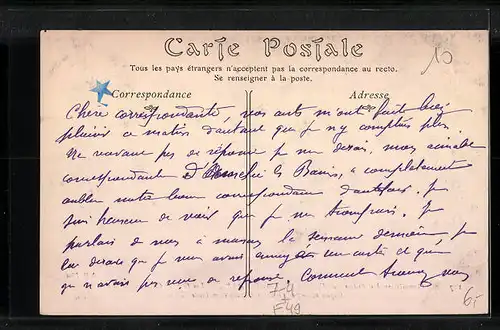 Carte Postale
Tous les pays étrangers n'acceptent pas la correspondance au recto.
Se renseigner à la poste.
10
Correspondance
Adresse
Chère correspondante, vos cartes m'ont fait bien
plaisir ce matin d'autant que je n'y comptais plus
Ne recevant pas de réponse je me disais, mon aimable
correspondante d' les Bains, a complètement
oublier notre bonne correspondance d'autrefois. Je
suis heureux de voir que je me trompais. Je
parlais de vous à maman la semaine dernière, je
lui disais que je vous avais envoyé une carte et que
je n'avais pas reçu de réponse. Comment avez vous
74
F49
6,-